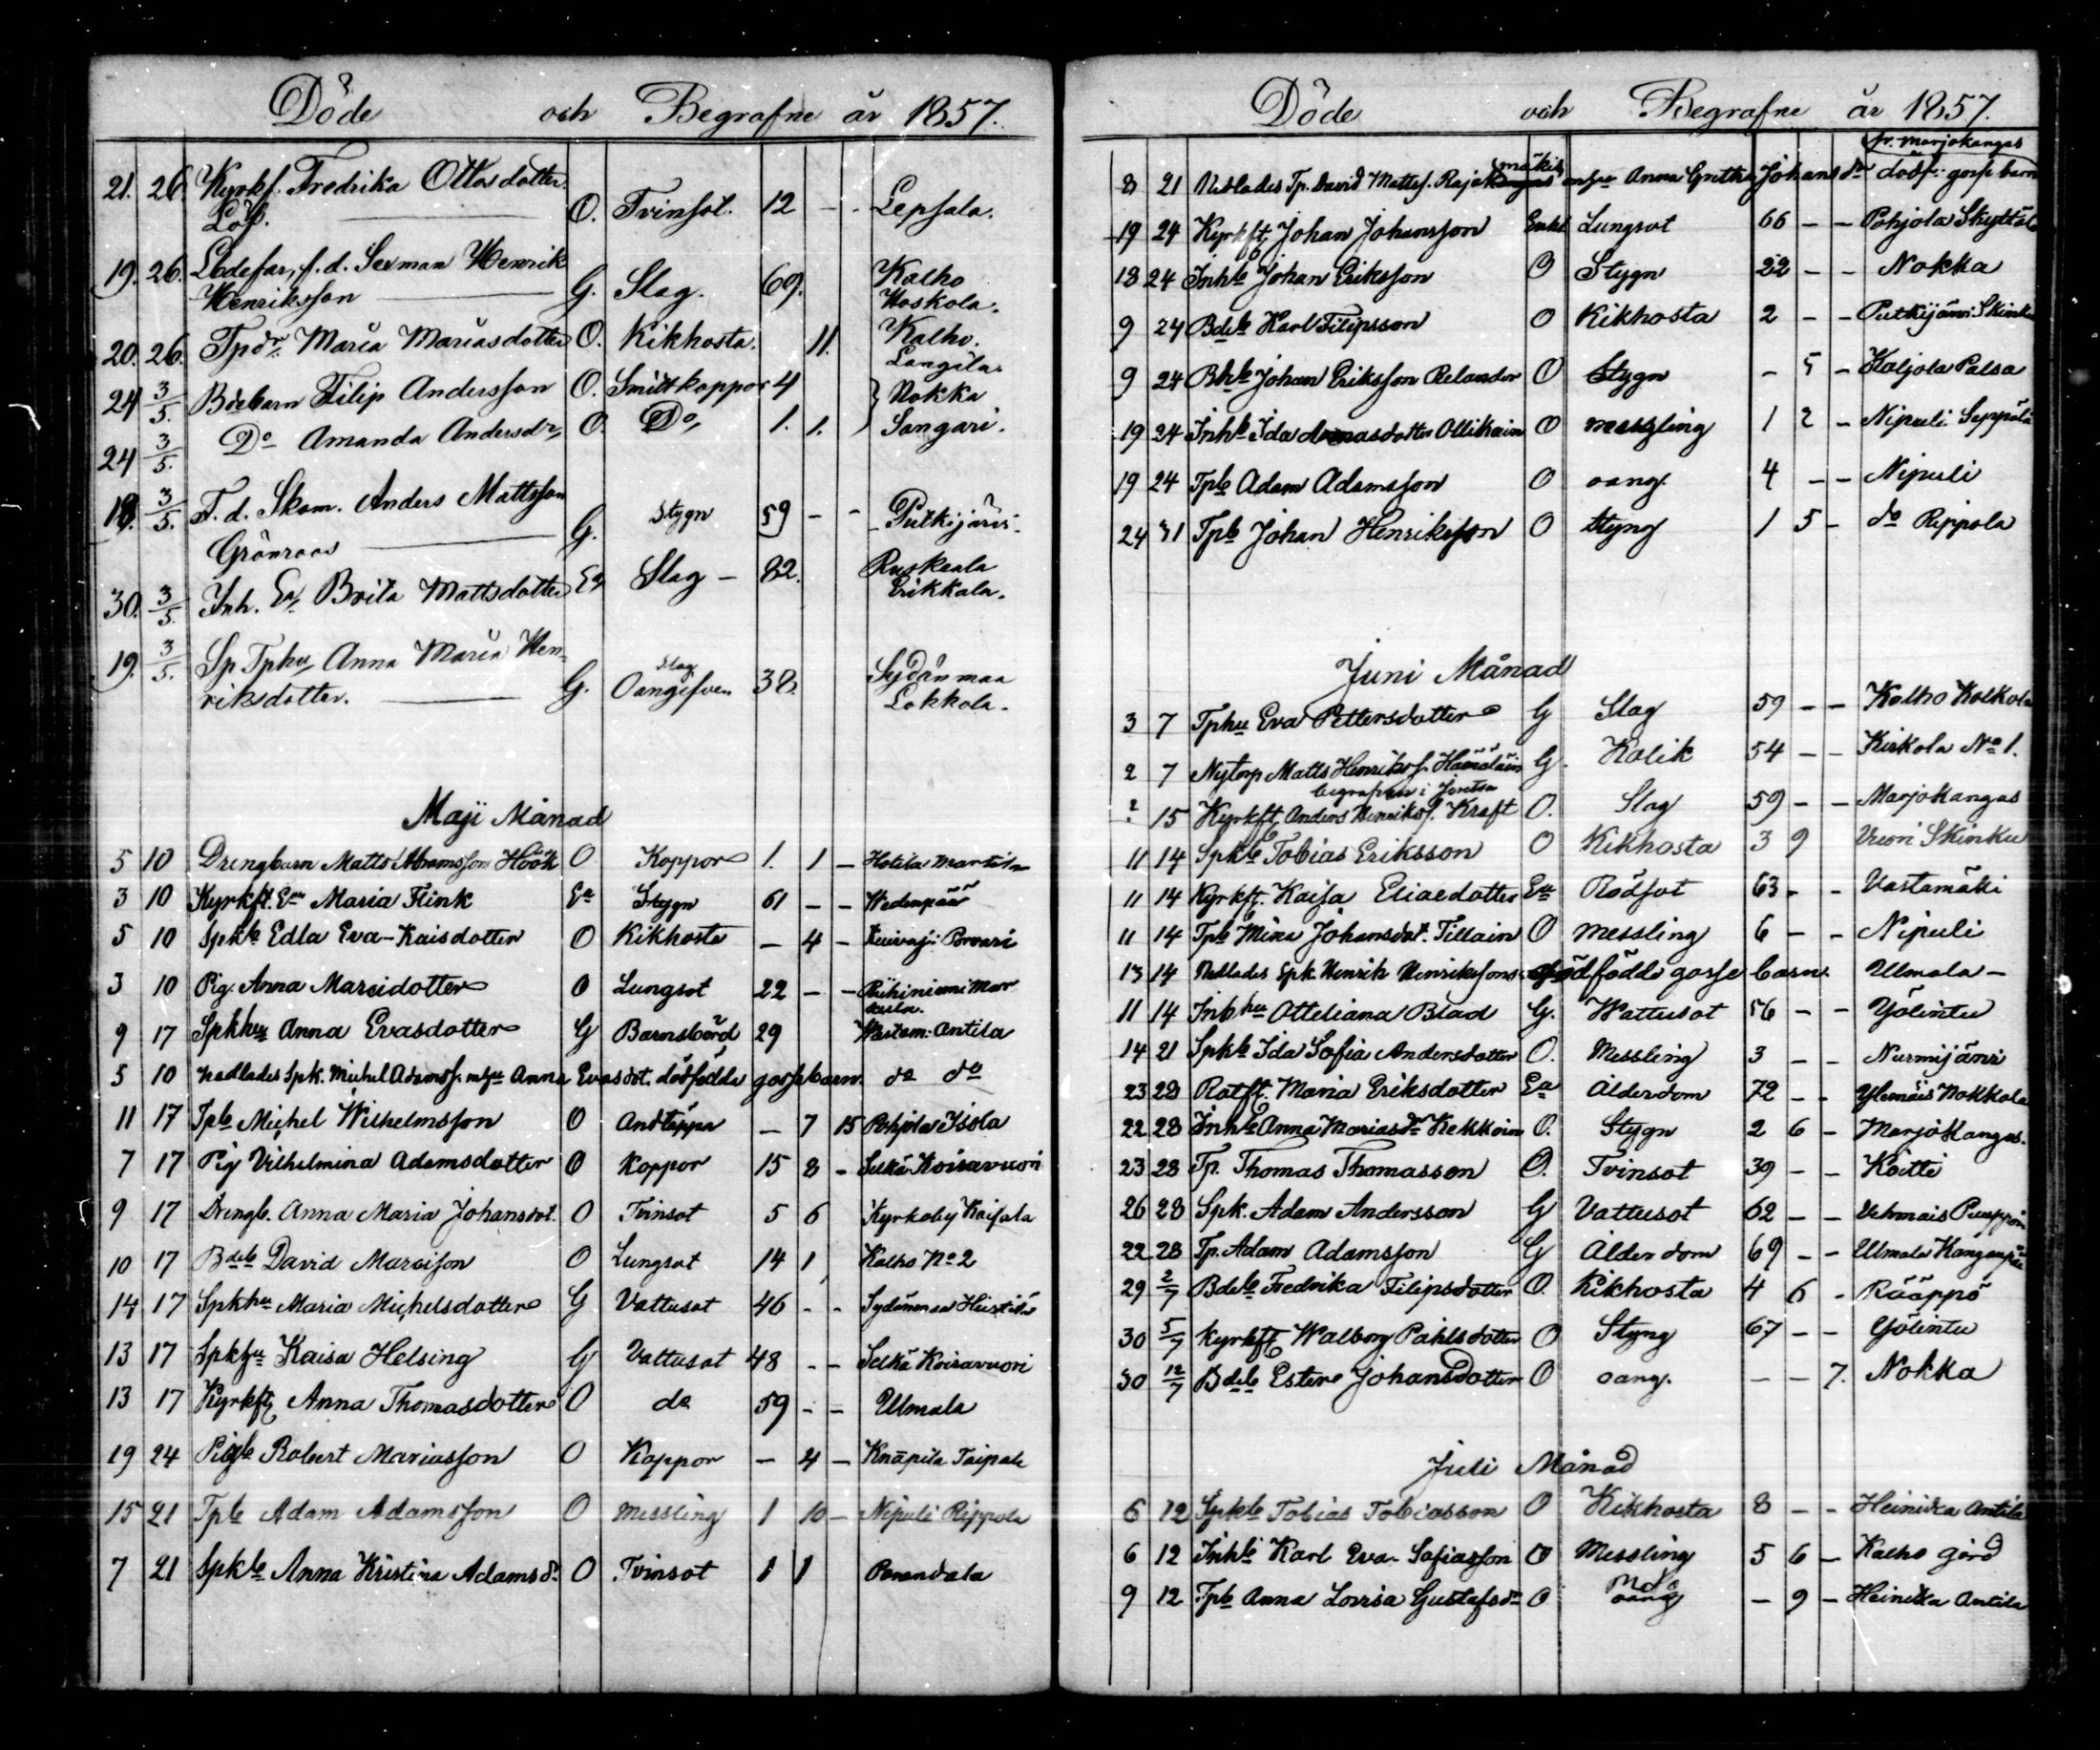 Döde och Begrafne år 1857.
21. 26. Kyrkf. Fredrika Ottosdotter
Löf. O. Tvinsot. 12 - - Lepsala.
19. 26. Lådefar, f.d. Sexman Henrik Kalho
Henriksson G. Slag. 69. Koskola.
20. 26. Tpdr Maria Mariasdotter O. Kikhosta. 11. Kalho.
Langila.
24 3/5. Bdebarn Filip Andersson O. Smittkoppor 4 Nokka
24 3/5. Do Amanda Andersdr O. Do 1. 1. Sangari.
18. 3/5. F. d. Skom. Anders Mattsson
Grönroos G. Stygn 59 - - Putkijärvi.
30. 3/5. Inh. Ea Brita Mattsdotter Ea Slag - 82. Ruskeala
Erikkala.
19. 3/5. Sp Tphu Anna Maria Hen-
riksdotter. G. Slag Oangifven 38. Sydänmaa
Lokkola.
Maji Månad
5 10 Drengbarn Matts Abramsson Höök O Koppor 1. 1 - Hotila Martila
3 10 Kyrkft. Ean Maria Flink Ea Stygn 61 - - Wedenpää
5 10 Spkb Edla Eva-Kaisdotter O Kikhosta - 4 - Kuivaj:
3 10 Pig. Anna Mariidotter O Lungsot 22 - - Riihiniemi Mar
kkula.
9 17 Spkhu Anna Evasdotter G Barnsbörd 29 Wastam: Antila
5 10 Nedlades Spk. Michel Adamss. m hu Anna Evasdot. dödfödda gossebarn. do do
11 17 Tpb Michel Wilhelmsson O Andtäppa - 7 15 Pohjola Isola
7 17 Pig Vilhelmina Adamsdotter O Koppor 15 8 - Selkä Koiravuori
9 17 Drengb. Anna Maria Johansdot. O Tvinsot 5 6 Kyrkoby Kaisala
10 17 Bdeb David Maraison O Lungsot 14 1 Kalho No 2
14 17 Spkhu Maria Michelsdotter G Vattusot 46 - - Sydänmaa Heistilä
13 17 Spkhu Kaisa Helsing G Vattusot 48 - - Selkä Koiravuori
13 17 Kyrkft Anna Thomasdotter O do 59 - - Ulmala
19 24 Pigb Robert Mariasson O Koppor - 4 - Knäpilä Taipale
15 21 Tpb Adam Adamsson O Messling 1 10 - Nipuli Rippola
7 21 Spkb Anna Kristina Adamsdr O Tvinsot 1 1 Parandala
Döde och Begrafne år 1857.
fr. Marjokangas
8 21 Nedlades Tp. David Mattss. Rajakangas mäkis m hu Anna Gretha Johansdr dödf: gosse barn
19 24 Kyrkft Johan Johansson Enkl Lungsot 66 - - Pohjola Skyttälä
18 24 Inhb Johan Eriksson O Stygn 22 - - Nokka
9 24 Bdeb Karl Filipsson O Kikhosta 2 - - Putkijärvi Skinku
9 24 Bhb Johan Eriksson Relander O Stygn - 5 - Kaljola Palsa
19 24 Inhb Ida Annasdotter Ollikain O Messling 1 2 - Nipuli Seppälä
19 24 Tpb Adam Adamsson O oang. 4 - - Nipuli
24 31 Tpb Johan Henriksson O Styng 1 5 - do Rippola
Juni Månad
3 7 Tphu Eva Pettersdotter G Slag 59 - - Kalho Kolkola
2 7 Nytorp Matts Henrikss. Hämäläin G. Kolik 54 - - Kirkola No 1.
begrafven i Joutsa
? 15 Kyrkft Anders Henrikss. Kraft O. Slag 59 - - Marjokangas
11 14 Spkb Tobias Eriksson O Kikhosta 3 9 Vuori Skinku
11 14 Kyrkft. Kaisa Eliaedotter Ea Rödsot 63 - - Vastamäki
11 14 Tpb Mina Johansdot. Tillain O Messling 6 - - Nipuli
13 14 Nedlades Spk. Henrik Henrikssons dödfödde gosse barn. Ulmala -
11 14 Inhhu Otteliana Blad G. Wattusot 56 - - Yölintu
14 21 Spkb Ida Sofia Andersdotter O. Messling 3 - - Nurmijärvi
23 28 Rotft. Maria Eriksdotter Ea Ålderdom 72 - - Ylemäis Nokkola
22 28 Inhb Anna Mariasdr Kekkoin O. Stygn 2 6 - Marjokangas.
23 28 Tp. Thomas Thomasson O. Tvinsot 39 - - Koitti
26 28 Spk. Adam Andersson G Vattusot 62 - - Vehmais
22 28 Tp. Adam Adamsson G Ålderdom 69 - - Ulmala Kangaspää
29 2/7 Bdeb Fredrika Filipsdotter O. Kikhosta 4 6 - Rääppö
30 5/7 Kyrkft Walborg Påhlsdotter O Styng 67 - - Yölintu
30 12/7 Bdeb Ester Johansdotter O oang. - - 7. Nokka
Juli Månad
6 12 Spkb Tobias Tobiasson O Kikhosta 8 - - Heinikka Antila
6 12 Inhb Karl Eva-Sofiasson O Messling 5 6 - Kalho gård
9 12 Tpb Anna Lovisa Gustafsdr O oang - 9 - Heinikka Antila